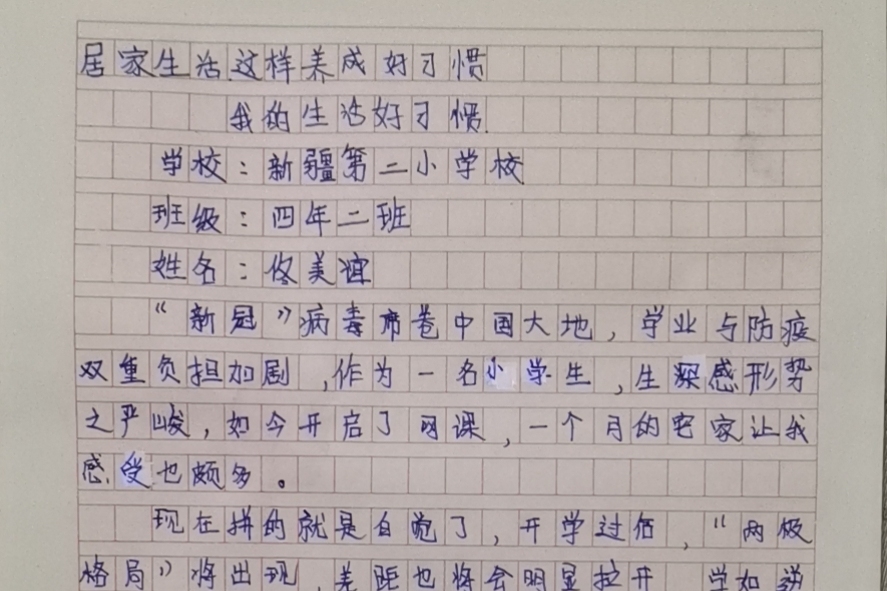 居家生活这样养成好习惯
我的生活好习惯
学校：新疆第二小学校
班级：四年二班
姓名：佟美谊
“新冠”病毒席卷中国大地，学业与防疫
双重负担加剧，作为一名小学生，生深感形势
之严峻，如今开启了网课，一个月的宅家让我
感受也颇多。
现在拼的就是自觉了，开学过后，“两极
格局”将出现，差距也将会明显拉开，学如逆